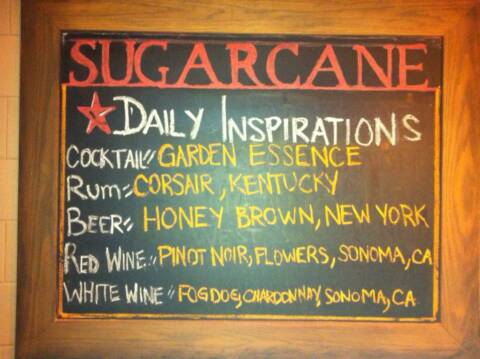 SUGARCANE
DAILY INSPIRATIONS
COCKTAIL: GARDEN ESSENCE
RUM: CORSAIR, KENTUCKY
BEER: HONEY BROWN, NEW YORK
RED WINE: PINOT NOIR, FLOWERS, SONOMA, CA
WHITE WINE: FOGDOG, CHARDONNAY, SONOMA, CA